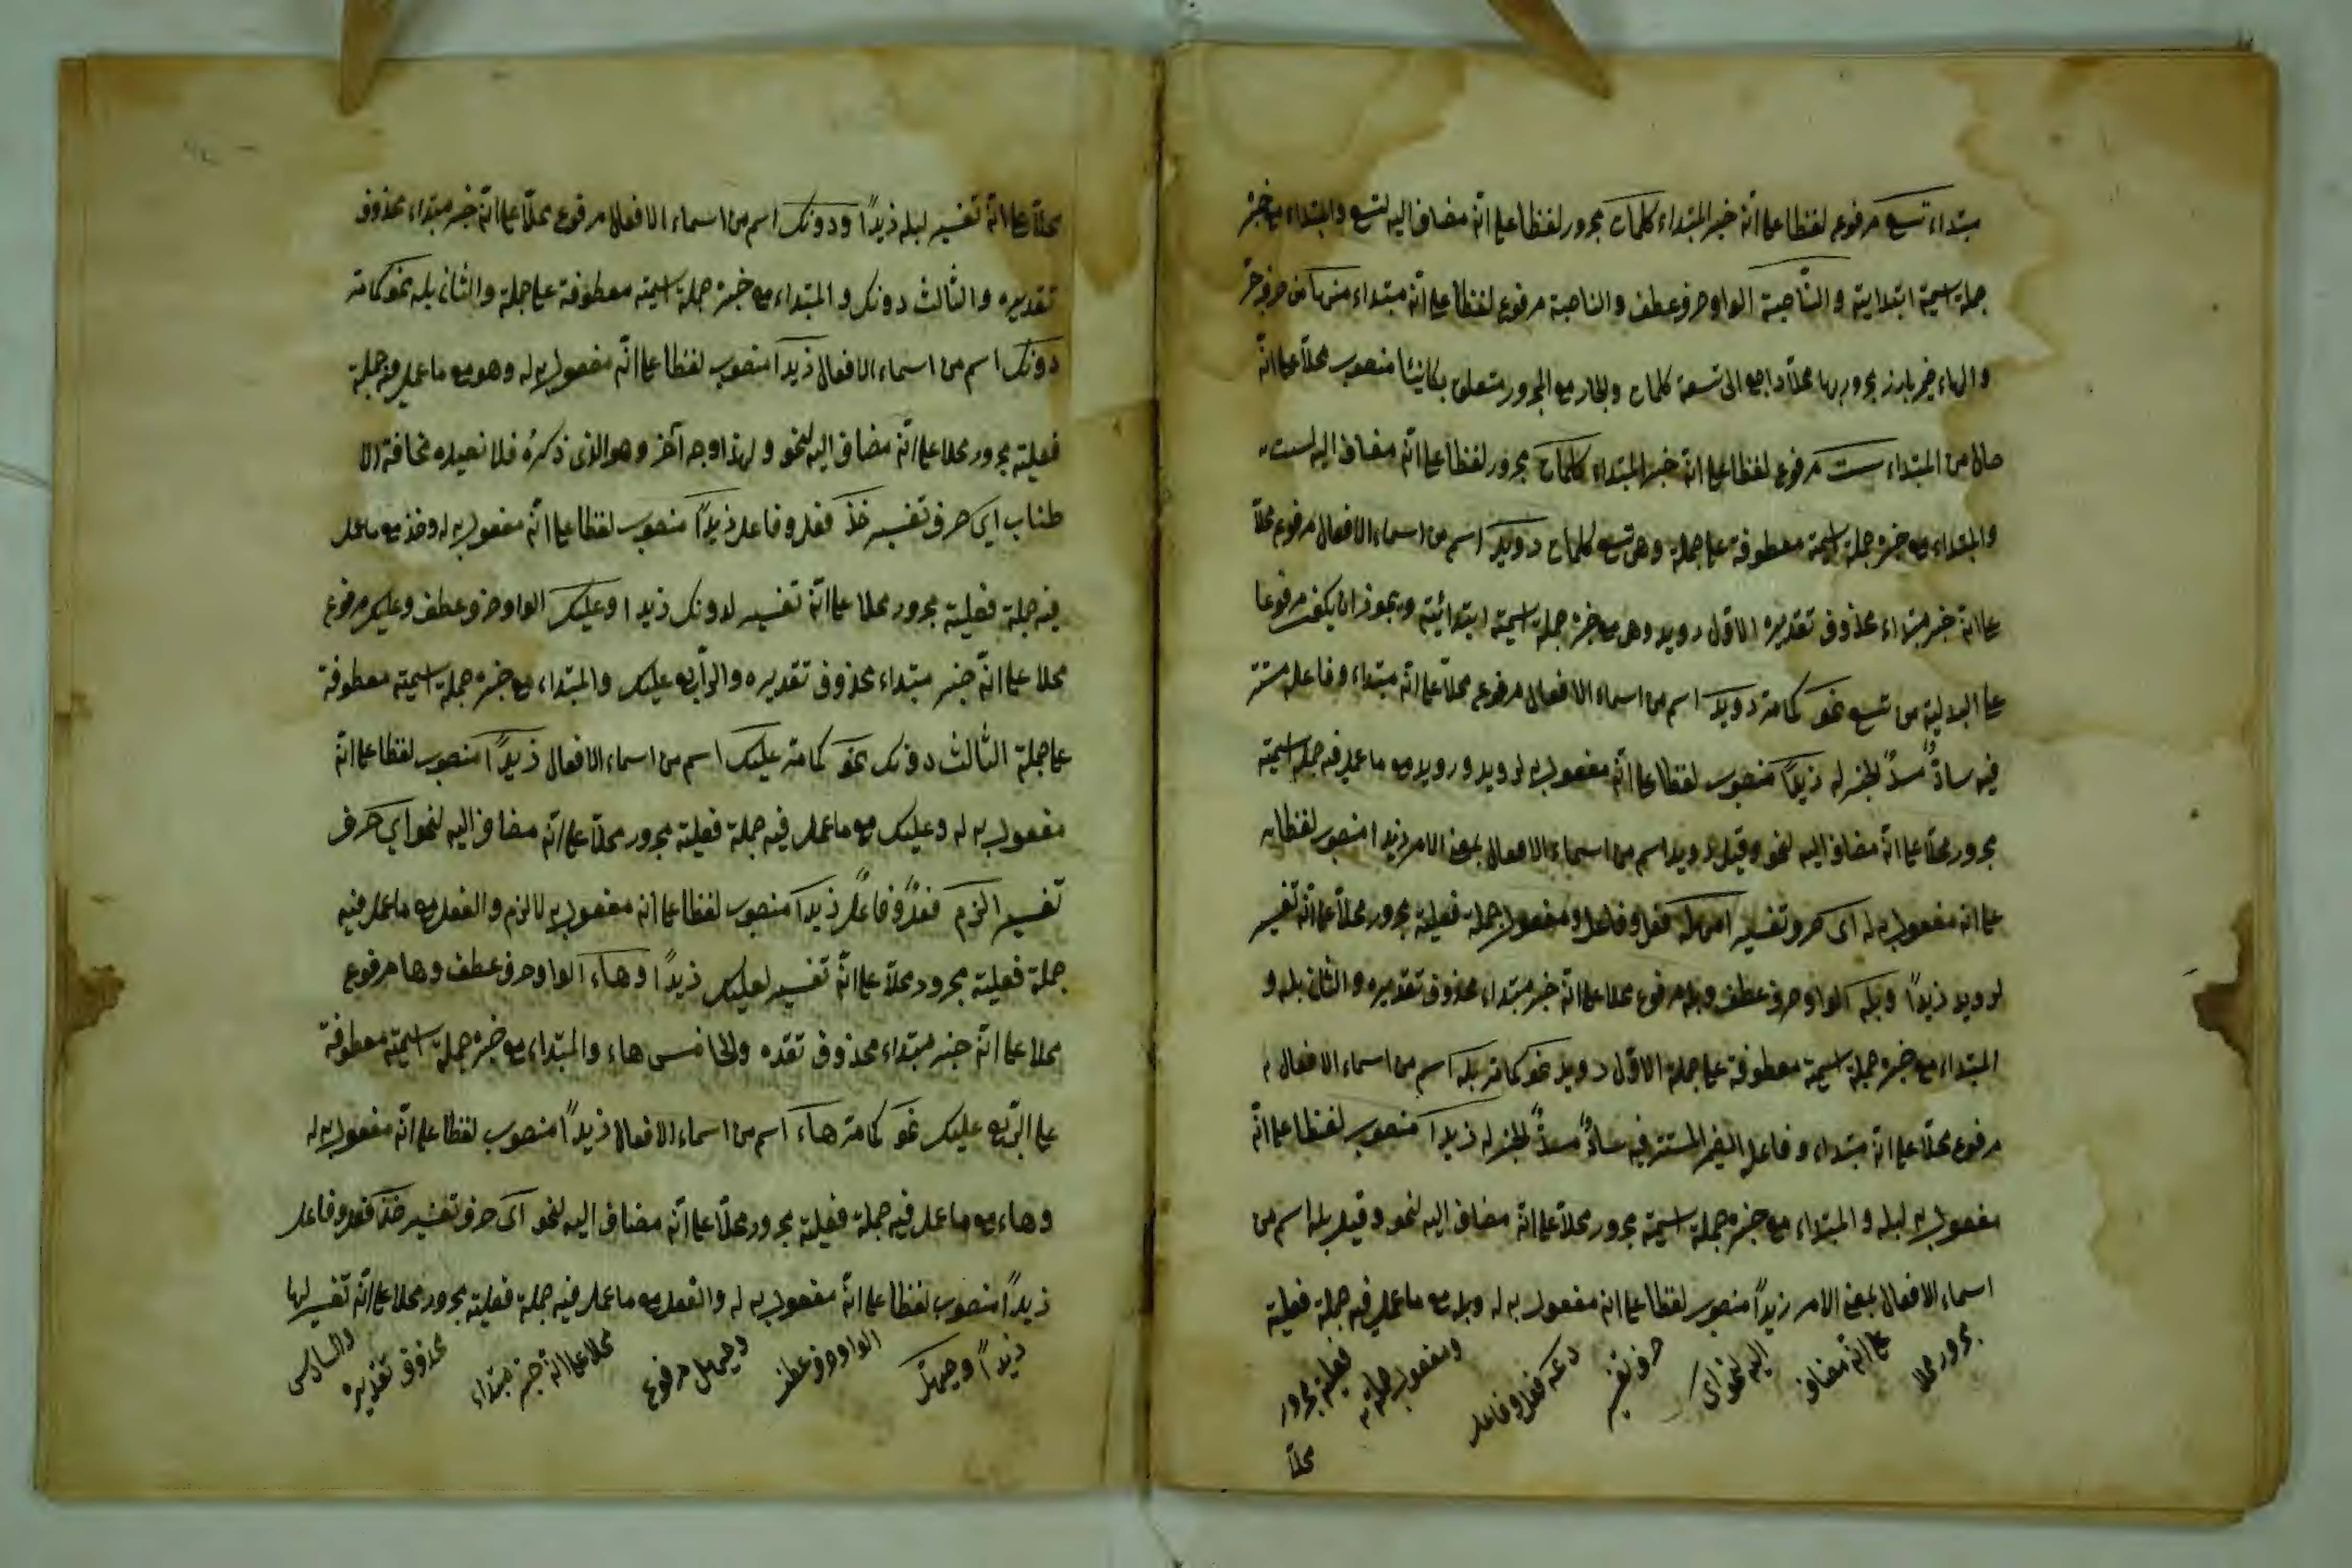 مبتداء تسع مرفوع لفظا على انّه خبر المبتداء كلمات مجرور لفظا على انّه مضاف اليه لتسع والمبتداء مع خبره
جملة اسمية ابتدايته والنّاصبة الواو حرف عطف والناصبة مرفوع لفظا على انّه مبتداء منها من حرف جرّ
والهاء ضمير بارز مجرور بها محلّا راجع الى تسعة كلمات والجار مع المجرور متعلق بكائنا منصوب محلّا على انّه
حالا من المبتداء ست مرفوع لفظا على انّه خبر المبتداء كلمات مجرور لفظا على انّه مضاف اليه لست
والمبتداء مع خبره جملة اسمية معطوفة على جملة وهى تسع كلمات رويد اسم من اسماء الافعال مرفوع محلّا
على انّه خبر مبتداء محذوف تقديره الاوّل رويد وهى مع خبره جملة اسمية ابتدائية ويجوز ان يكون مرفوعا
على البدلية من تسع نحو كما مرّ رويد اسم من اسماء الافعال مرفوع محلّا على انّه مبتداء وفاعله مستتر
فيه سادٌّ مسدّ الخبر له زيدًا منصوب لفظا على انّه مفعول به لرويد ورويد مع ما عمل فيه جملة اسمية
مجرور محلّا على انّه مضاف اليه لنحو وقيل رويد اسم من اسماء الافعال بمعنى الامر زيدا منصوب لفظا
على انه مفعول به له اى حرف تفسير امهله فعل وفاعل ومفعول جملة فعلية مجرور محلّا على انّه تفسير
لرويد زيدًا وبله الواو حرف عطف وبله مرفوع محلا على انّه خبر مبتداء محذوف تقديره والثان بله و
المبتداء مع خبره جملة اسمية معطوفة على جملة الاوّل رويد نحو كما مرّ بله اسم من اسماء الافعال
مرفوع محلّا على انّه مبتداء وفاعل الضمير المستتر فيه سادٌّ مسدٌّ الخبر له زيدًا منصوب لفظا على انّه
مفعول به لبله والمبتداء مع خبره جملة اسمية مجرور محلّا على انّه مضاف اليه لنحو وقيل بله اسم من
اسماء الافعال بمعنى الامر زيدًا منصوب لفظا على انه مفعول به له وبله مع ما عمل فيه جملة فعلية
مجرور محلا على انّه مضاف اليه لنحو اى حرف تفسير دعه فعل وفاعل ومفعول جملة فعلية مجرور
محلّا
محلّا على انّه تفسير لبله زيدًا ودونك اسم من اسماء الافعال مرفوع محلّا على انّه خبر مبتداء محذوف
تقديره والثالث دونك والمبتداء مع خبره جملة اسمية معطوفة على جملة والثان بله نحو كما مرّ
دونك اسم من اسماء الافعال زيدًا منصوب لفظا على انّه مفعول به له وهو مع ما عمل فيه جملة
فعلية مجرور محلا على انّه مضاف اليه لنحو ولهذا وجه آخر وهو الذى ذكرهُ فلا نعيده مخافة الا
طناب اى حرف تفسير خذ فعل وفاعل زيدًا منصوب لفظا على انّه مفعول به له وخذ مع ما عمل
فيه جملة فعلية مجرور محلا على انّه تفسير لدونك زيدا وعليك الواو حرف عطف وعليك مرفوع
محلا على انّه خبر مبتداء محذوف تقديره والرّابع عليك والمبتداء مع خبره جملة اسمية معطوفة
على جملة الثالث دونك نحو كما مرّ عليك اسم من اسماء الافعال زيدًا منصوب لفظا على انّه
مفعول به له وعليك مع ما عمل فيه جملة فعلية مجرور محلّا على انّه مضاف اليه لنحو اى حرف
تفسير الزم فعلٌ وفاعلٌ زيدًا منصوب لفظا على انه مفعول به لالزم والفعل مع ما عمل فيه
جملة فعلية مجرور محلّا على انّه تفسير لعليك زيدًا وهاء الواو حرف عطف وها مرفوع
محلا على انّه خبر مبتداء محذوف تقده والخامس هاء والمبتداء مع خبره جملة اسمية معطوفة
على الرّابع عليك نحو كما مرّ هاء اسم من اسماء الافعال زيدًا منصوب لفظا على انّه مفعول به له
وهاء مع ما عمل فيه جملة فعلية مجرور محلّا على انّه مضاف اليه لنحو اى حرف تفسير خذ فعل وفاعل
زيدًا منصوب لفظا على انّه مفعول به له والفعل مع ما عمل فيه جملة فعلية مجرور محلا على انّه تفسير لها
زيدًا وحيهل الواو حرف عطف وحيهل مرفوع محلا على انّه خبر مبتداء محذوف تقديره والسادس